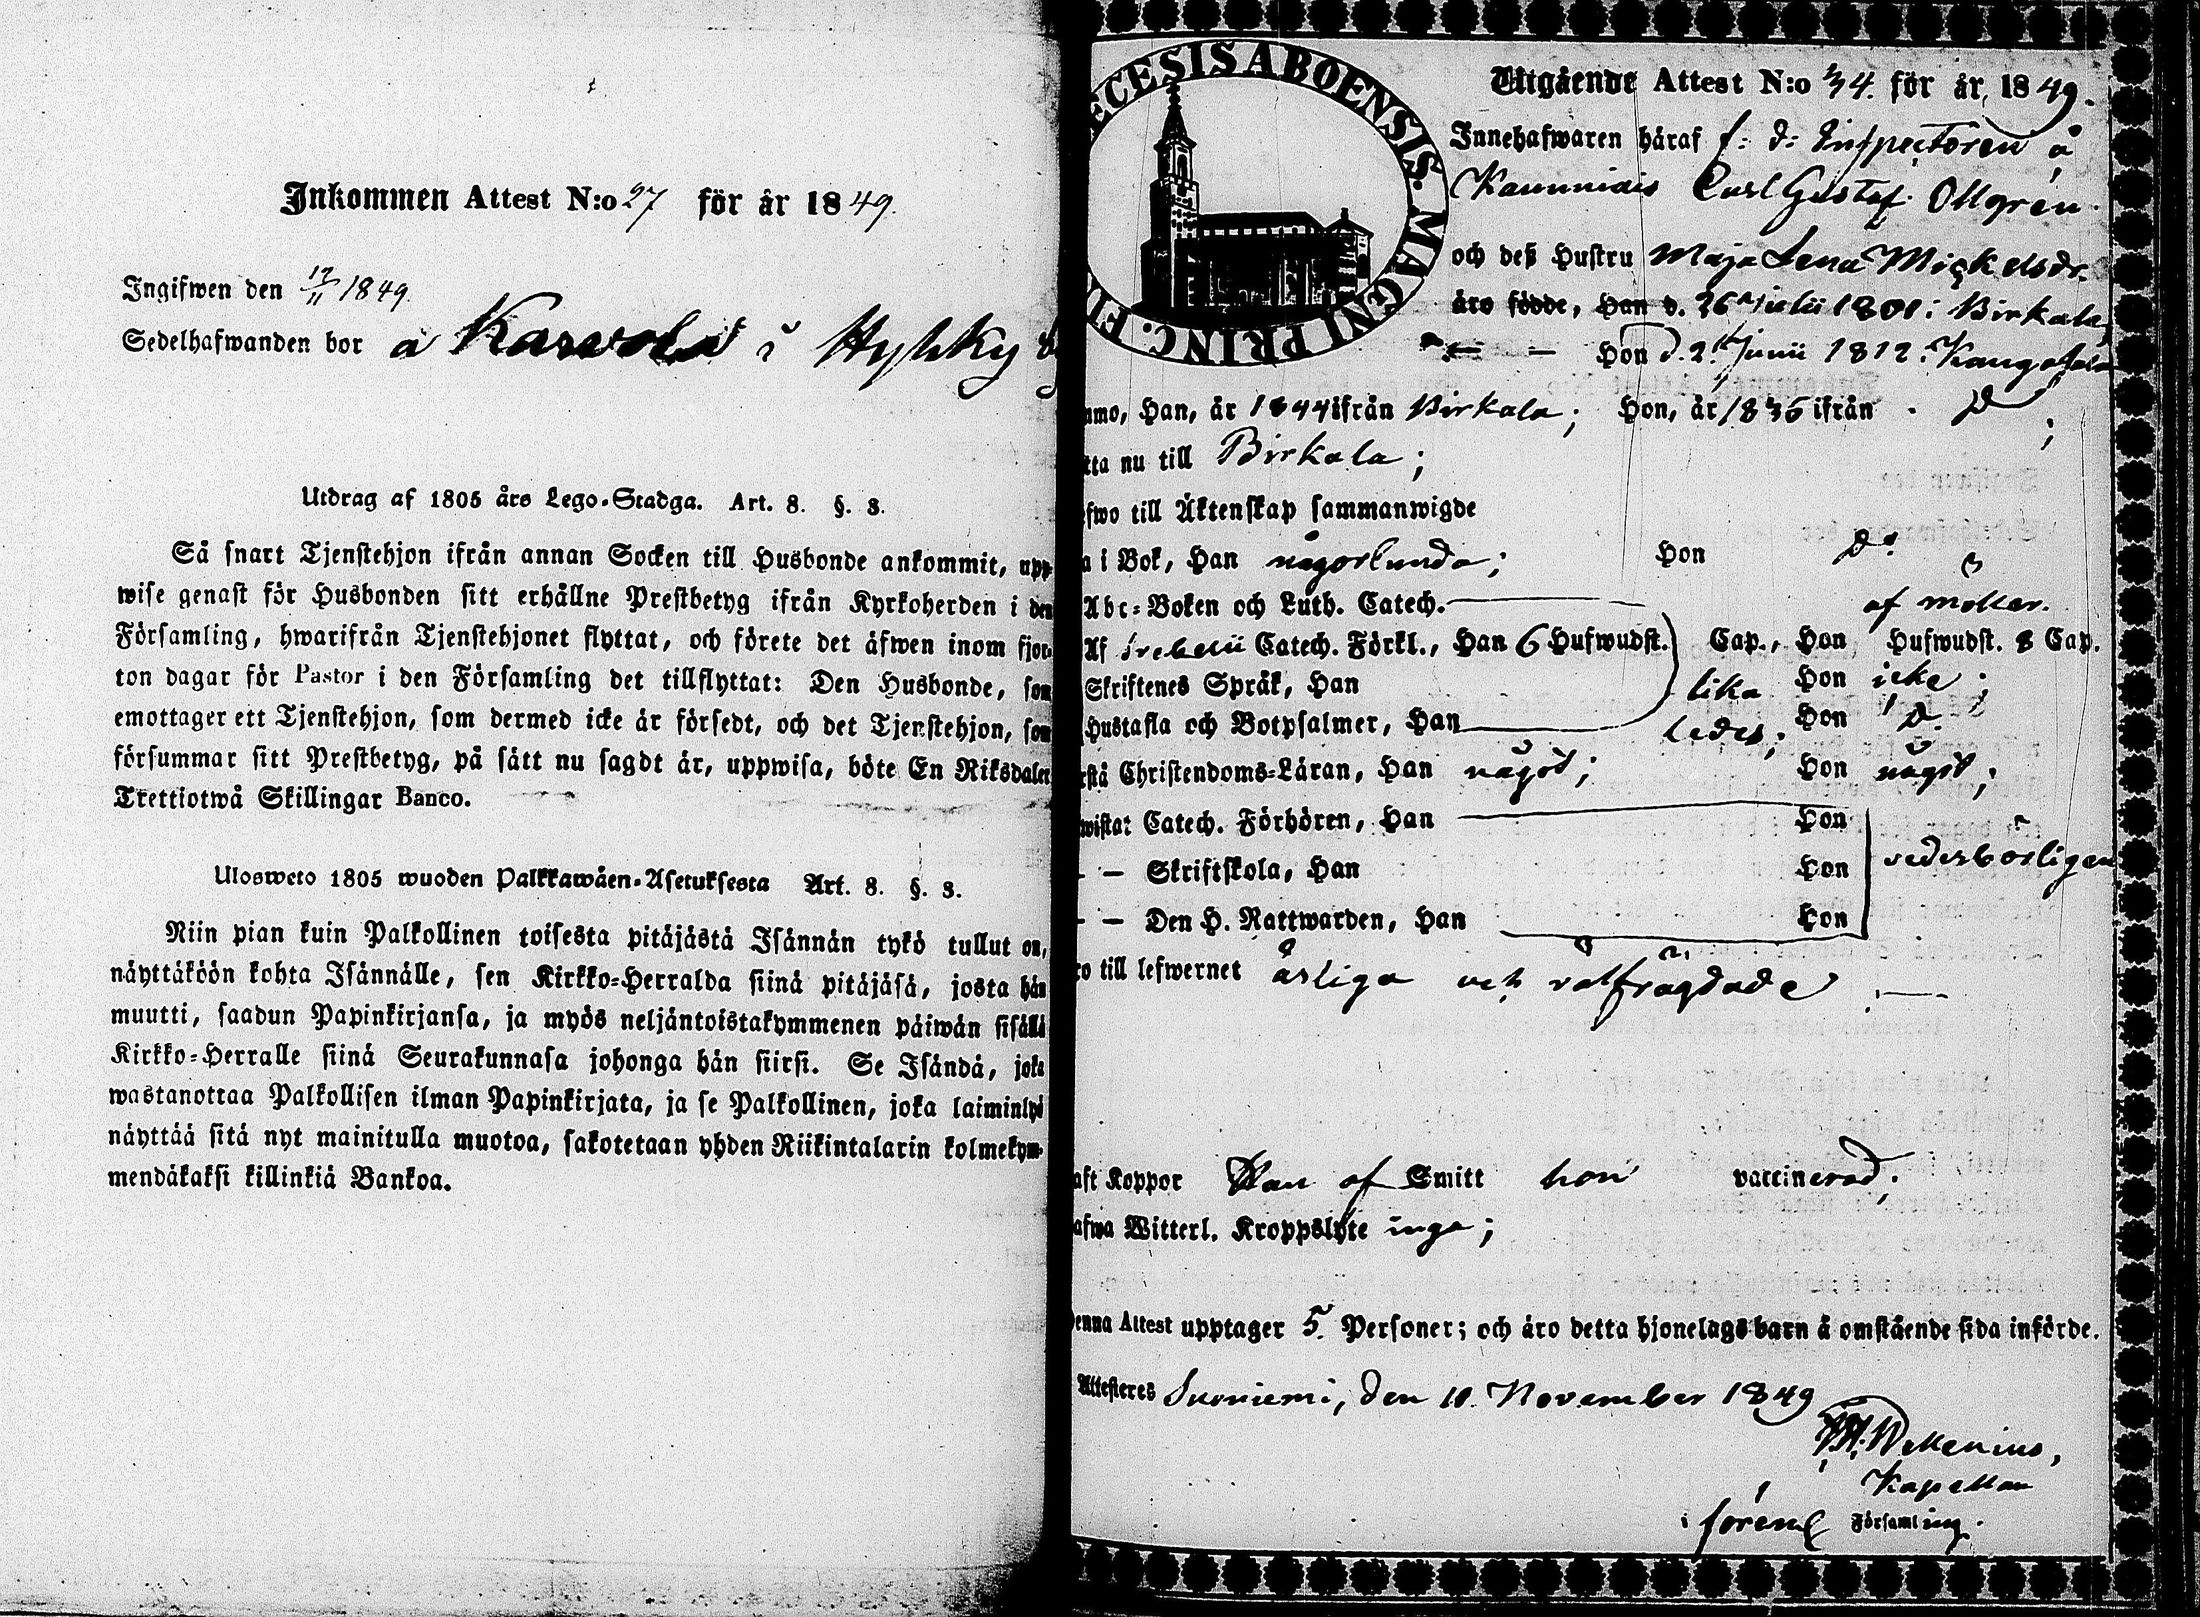 Inkommen Attest N:o 27 för år 1849.
Ingifwen den 17/11 1849.
Sedelhafwanden bor å Karvola i Hyhky
Utdrag af 1805 års Lego-Stadga. Art. 8. §. 3.
Så snart Tjenstehjon ifrån annan Socken till Husbonde ankommit, upp-
wise genast för Husbonden sitt erhållne Prestbetyg ifrån Kyrkoherden i den
Församling, hwarifrån Tjenstehjonet flyttat, och förete det äfwen inom fjor-
ton dagar för Pastor i den Församling det tillflyttat: Den Husbonde, som
emottager ett Tjenstehjon, som dermed icke är försedt, och det Tjenstehjon, som
försummar sitt Prestbetyg, på sätt nu sagdt är, uppwisa, böte En Riksdaler
Trettiotwå Skillingar Banco.
Ulosweto 1805 wuoden Palkkawäen-Asetuksesta Art. 8. §. 3.
Niin pian kuin Palkollinen toisesta pitäjästä Isännän tykö tullut on,
näyttäköön kohta Isännälle, sen Kirkko-Herralda siinä pitäjäsä, josta hän
muutti, saadun Papinkirjansa, ja myös neljäntoistakymmenen päiwän sisällä
Kirkko-Herralle siinä Seurakunnasa johonga hän siirsi. Se Isändä, joka
wastanottaa Palkollisen ilman Papinkirjata, ja se Palkollinen, joka laiminlyö
näyttää sitä nyt mainitulla muotoa, sakotetaan yhden Riikintalarin kolmekym-
mendäkaksi killinkiä Bankoa.
ECESIS ABOENSIS. MAGNI PRINC. FI
Utgående Attest N:o 34. för år 1849.
Innehafwaren häraf f: d: Inspectoren å
Kaunniais Carl Gustaf Ollgrén
och deß Hustru Maja Lena Mickelsdr.
äro födde, Han d. 26 Julii 1801 i Birkala,
Hon d. 2 Junii 1812. Kangasala
mo, Han, år 1844 ifrån Birkala; Hon, år 1836 ifrån D;
tta nu till Birkala;
fwo till Äktenskap sammanwigde
a i Bok, Han någorlunda; Hon D:o
Abc-Boken och Luth. Catech. af möller.
Af Svebelii Catech. Förkl., Han 6 Hufwudst. Cap., Hon Hufwudst. 8 Cap.
Skriftenes Språk, Han lika Hon icke;
Hustafla och Botpsalmer, Han ledes; Hon D
rstå Christendoms-Läran, Han något; Hon något;
wistat Catech. Förhören, Han Hon
— Skriftskola, Han Hon vederbörligen
— Den H. Nattwarden, Han Hon
ro till lefwernet ärliga och välfrägdade
aft Koppor Han af Smitt hon vaccinerad;
afwa Witterl. Kroppslyte inga;
Denna Attest upptager 5. Personer; och äro detta hjonelags barn å omstående sida införde.
Attesteres Suoniemi, den 10. November 1849
Kapellan
i förend Församling.